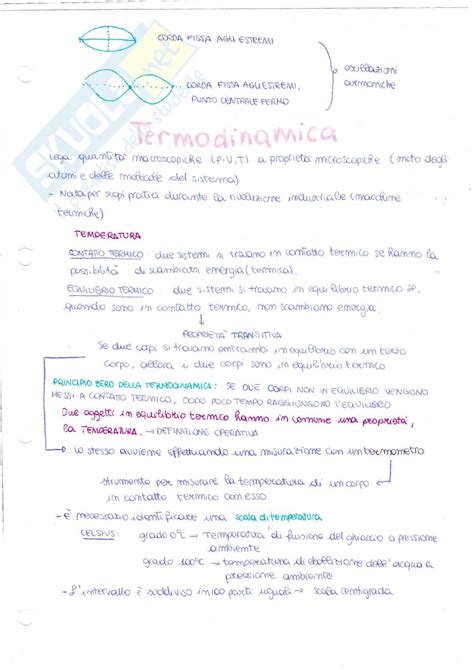 CORDA FISSA AGLI ESTREMI
CORDA FISSA AGLI ESTREMI,
PUNTO CENTRALE FERMO
oscillazioni
armoniche
Termodinamica
Lega quantità macroscopiche (P,V,T) a proprietà microscopiche (moto degli
atomi e delle molecole del sistema)
- Nata per scopi pratici durante la rivoluzione industriale (macchine
termiche)
TEMPERATURA
CONTATTO TERMICO: due sistemi si trovano in contatto termico se hanno la
possibilità di scambiarsi energia (termica).
EQUILIBRIO TERMICO: due sistemi si trovano in equilibrio termico se,
quando sono in contatto termico, non scambiano energia.
PROPRIETÀ TRANSITIVA
Se due corpi si trovano entrambi in equilibrio con un terzo
corpo, allora i due corpi sono in equilibrio termico
PRINCIPIO ZERO DELLA TERMODINAMICA: SE DUE CORPI NON IN EQUILIBRIO VENGONO
MESSI A CONTATTO TERMICO, DOPO POCO TEMPO RAGGIUNGONO L'EQUILIBRIO
Due oggetti in equilibrio termico hanno in comune una proprietà,
la TEMPERATURA. → DEFINIZIONE OPERATIVA
lo stesso avviene effettuando una misurazione con un termometro
strumento per misurare la temperatura di un corpo
in contatto termico con esso
- è necessario identificare una scala di temperatura
CELSIUS: grado 0°C → Temperatura di fusione del ghiaccio a pressione
ambiente
grado 100°C → temperatura di ebollizione dell'acqua a
pressione ambiente
- L'intervallo è suddiviso in 100 parti uguali → scala centigrada
SKUOLA.net